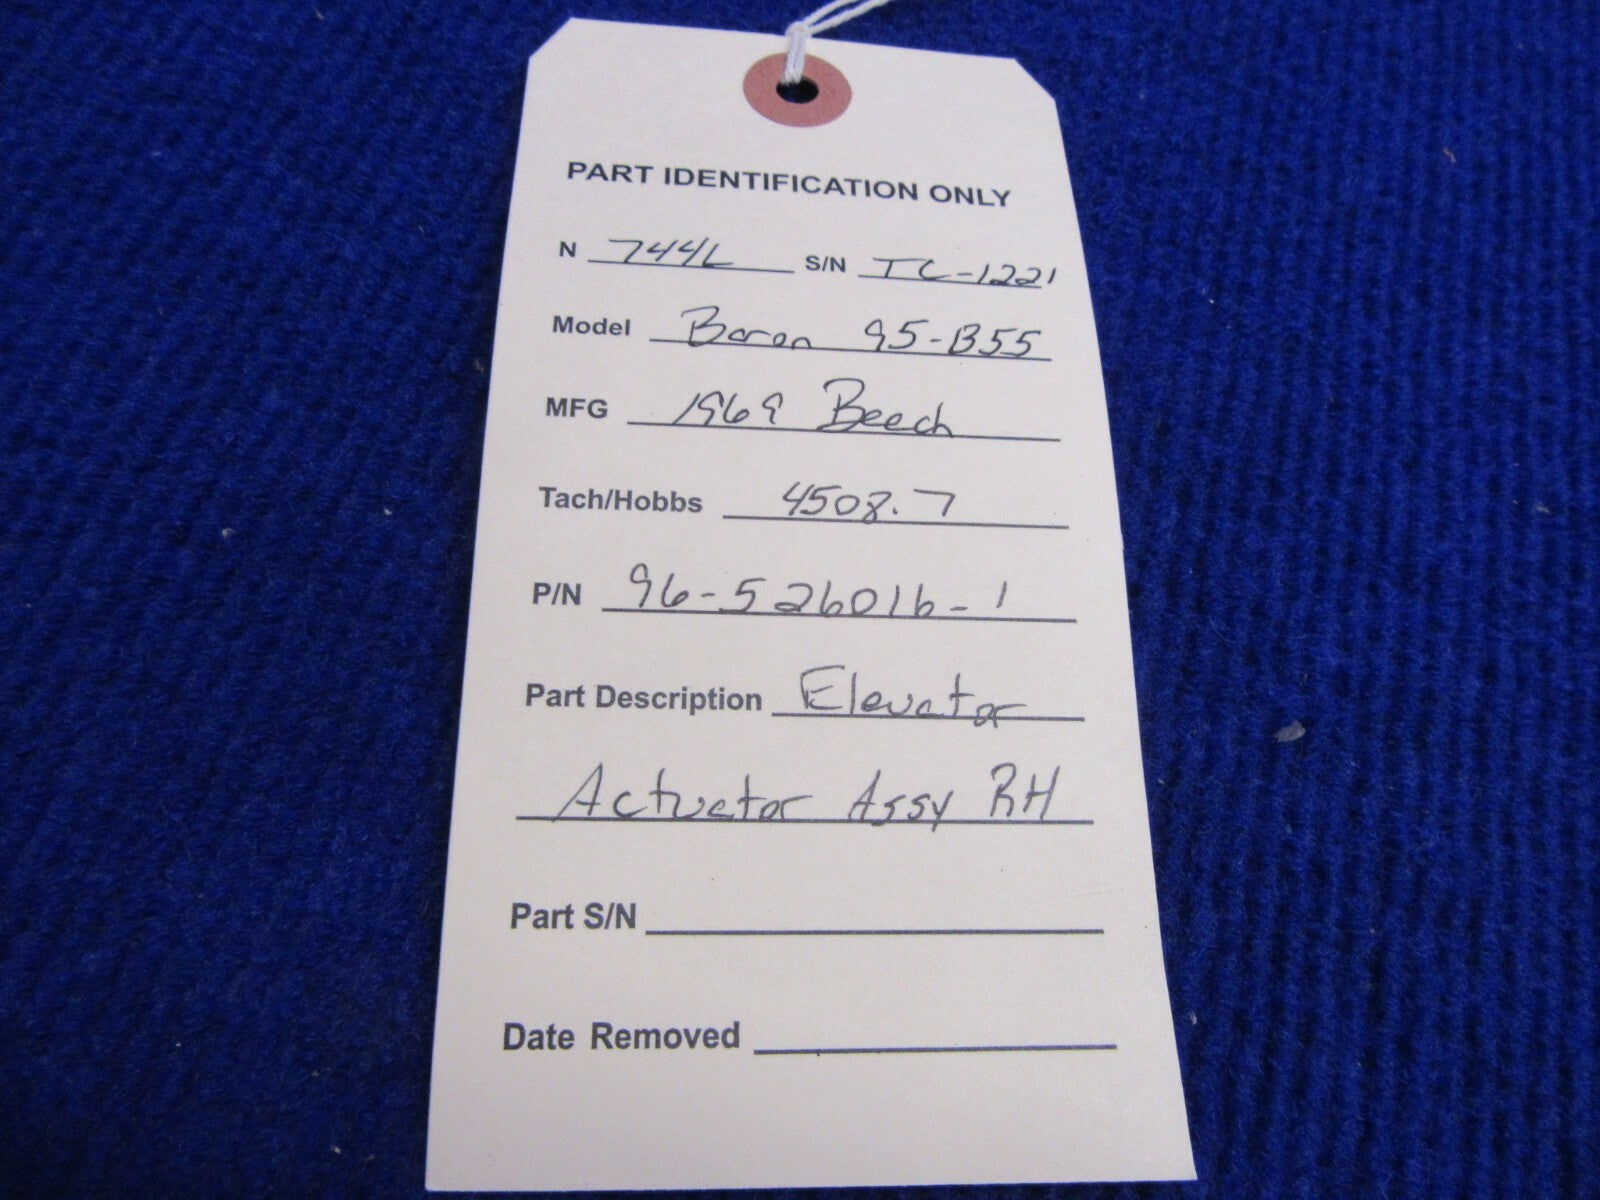 PART IDENTIFICATION ONLY
N 7441L S/N TC-1221
Model Baron 95-B55
MFG 1969 Beech
Tach/Hobbs 4508.7
P/N 96-526016-1
Part Description Elevator
Actuator Assy RH
Part S/N
Date Removed